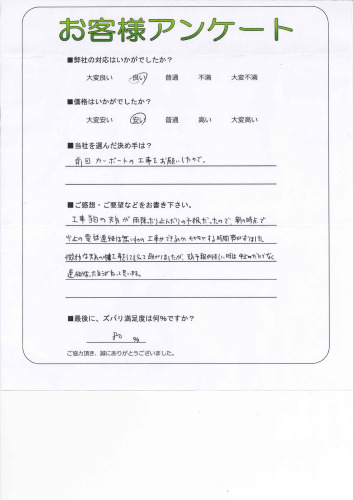 お客様アンケート
■弊社の対応はいかがでしたか？
大変良い 良い 普通 不満 大変不満
■価格はいかがでしたか？
大変安い 安い 普通 高い 大変高い
■当社を選んだ決め手は？
前回カーポートの工事をお願いしたので。
■ご感想・ご要望などをお書き下さい。
工事当日の天気が雨降ったり止んだりの予報だったので、朝の時点で
中止の電話連絡は無いものの工事ができるのか、モヤモヤする時間がありました
微妙な天気の中工事をして頂きましたが、天気予報があやしい時は
連絡は した方が良いと思います。
■最後に、ズバリ満足度は何％ですか？
80 %
ご協力頂き、誠にありがとうございました。